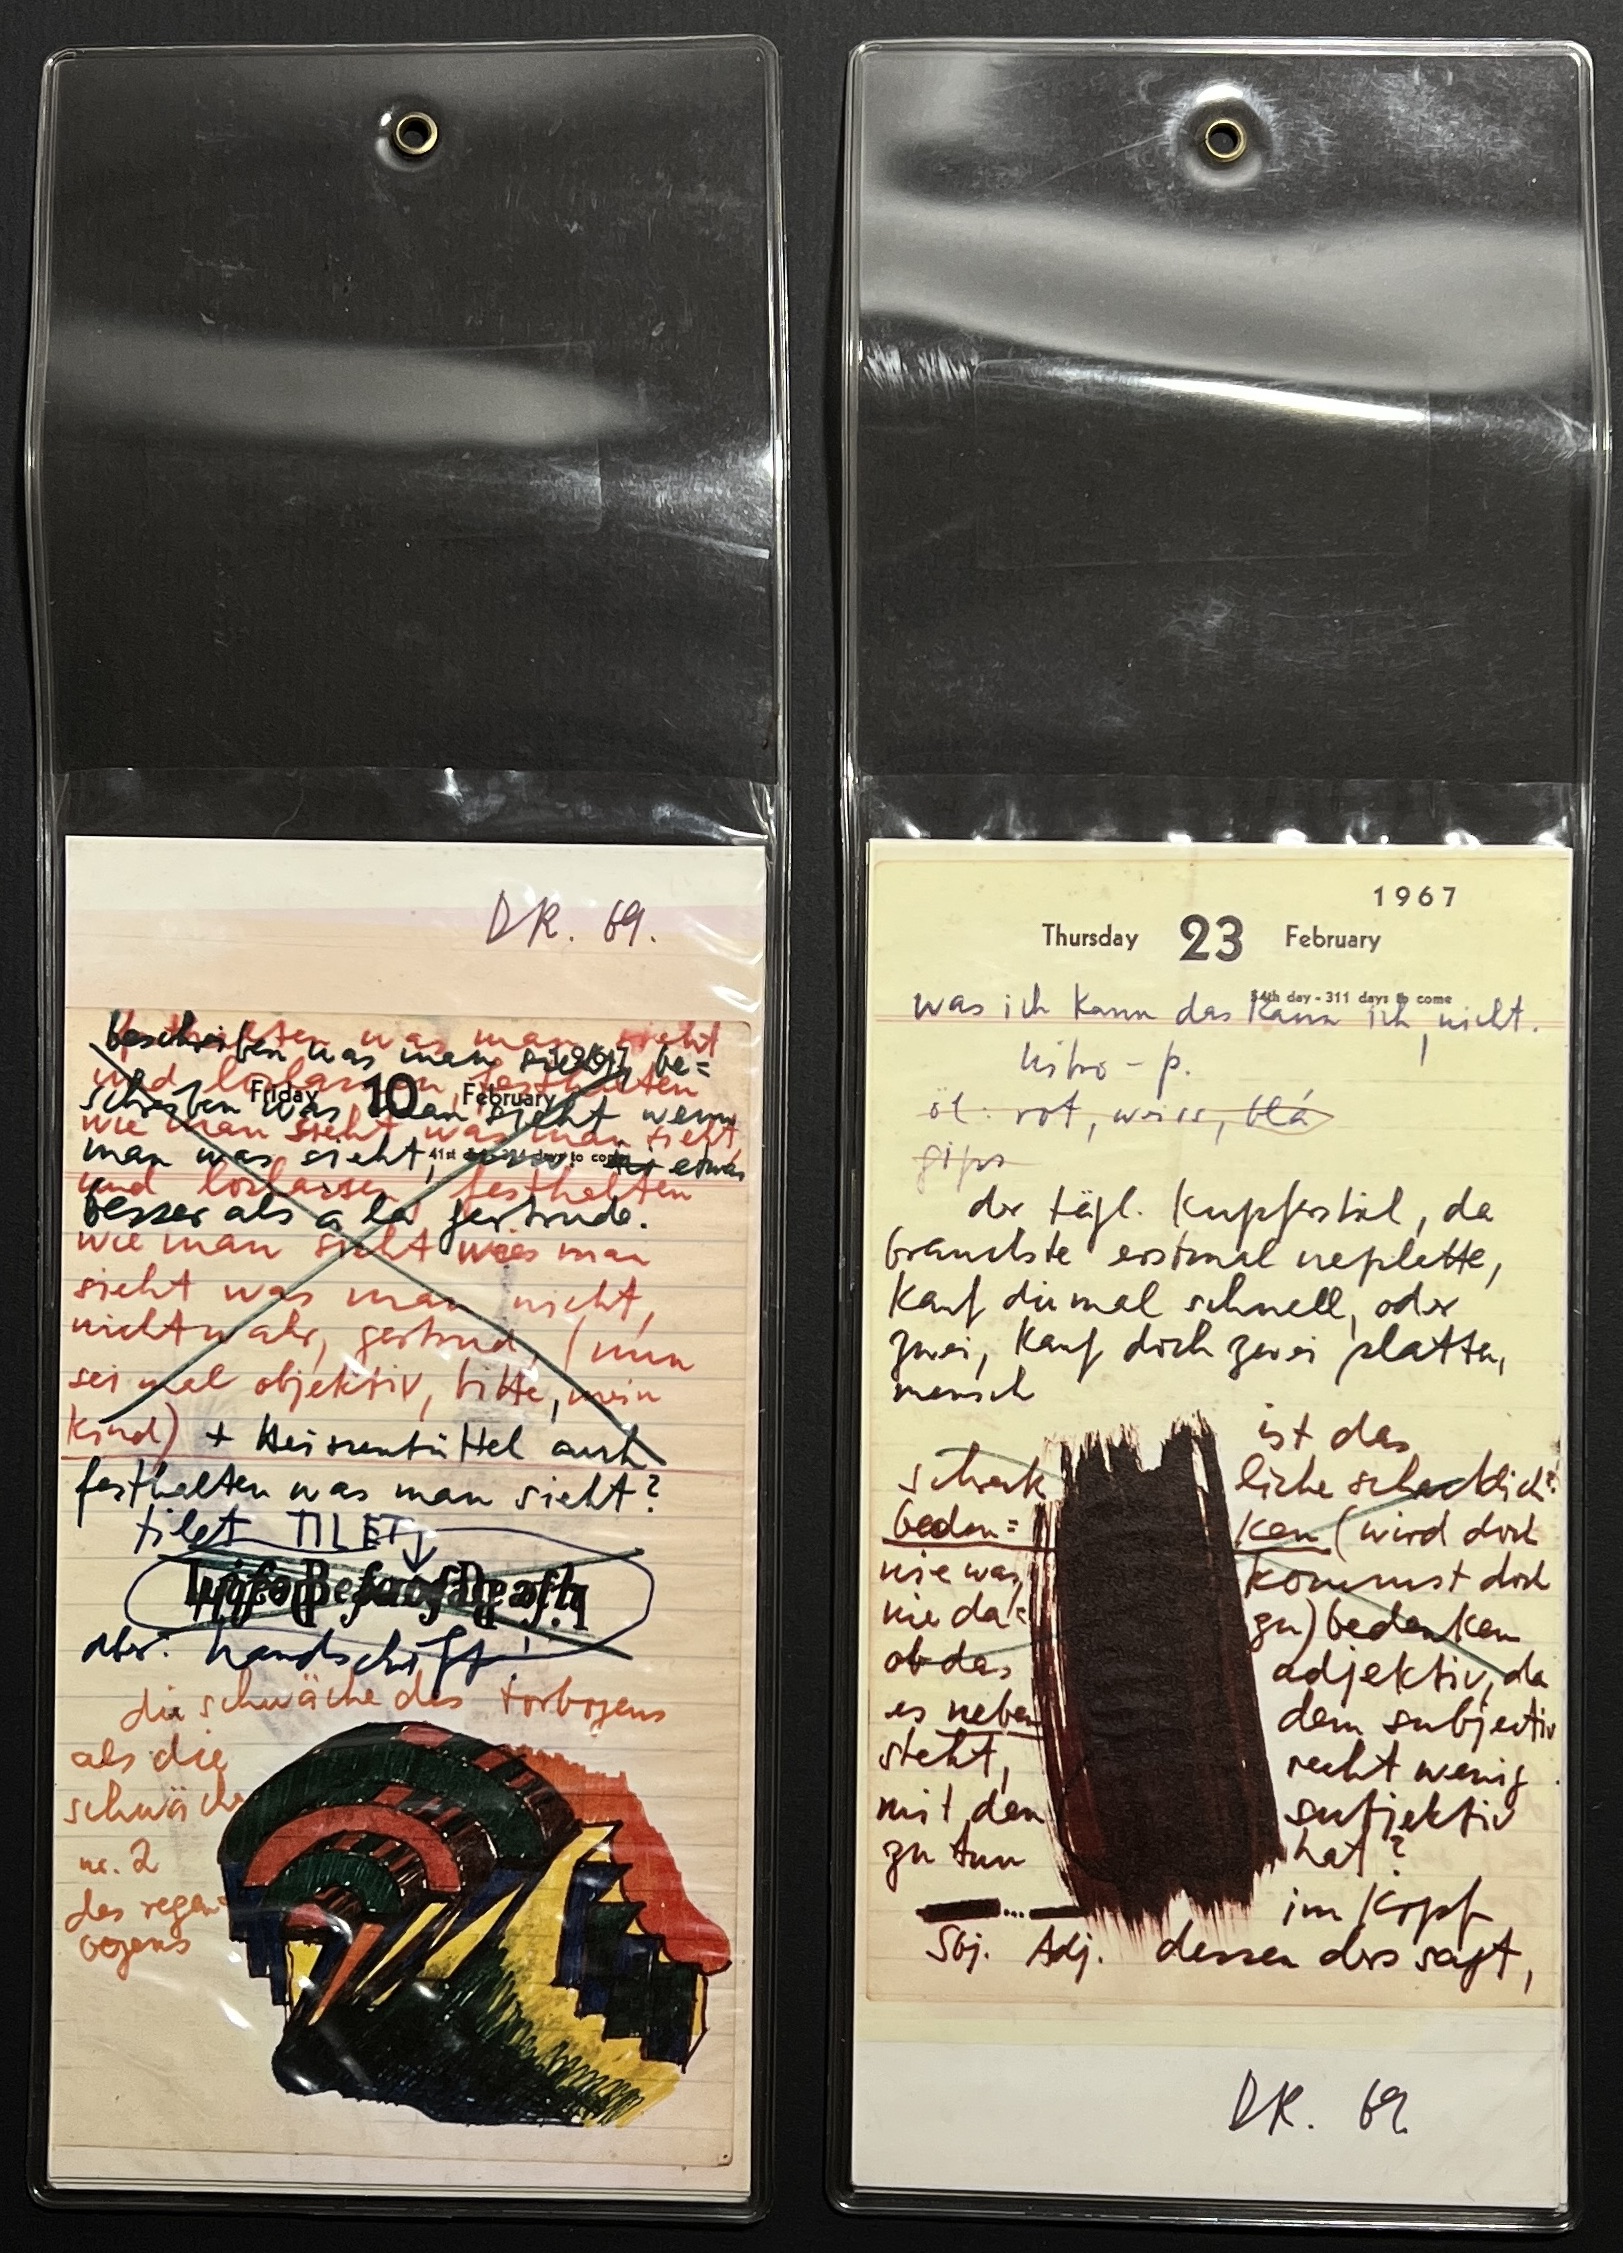 DR. 69.
festhalten was man sieht
beschreiben was man sieht, be=
1967
und loslassen, festhalten
Friday 10 February
schreiben was man sieht wenn
wie man sieht was man sieht,
man was sieht, etwas
41st day - 324 days to come
und loslassen festhalten
besser als a la gertrude.
wie man sieht wies man
sieht was man nicht,
nicht wahr, gertrud, (nun
sei mal objektiv, bitte, mein
kind) + Heissenbüttel auch
festhalten was man sieht?
tilet TILET
aber: handschrift!
die schwäche des torbogens
als die
schwäche
nr. 2
des regen=
bogens
1967
Thursday 23 February
54th day - 311 days to come
was ich kann das kann ich, nicht.
nitro - p.
öl: rot, weiss, bla
gips
der tägl. kupferstich, da
brauchste erstmal neplatte,
kauf dir mal schnell, oder
zwei, kauf doch zwei platten,
mensch
ist das
schreck liche schrecklich?
beden= ken (wird doch
nie was, kommst doch
nie da= zu) bedenken
ob das adjektiv, da
es neben dem subjectiv
steht, recht wenig
mit dem subjektiv
zu tun hat?
... im Kopf
Sbj. Adj. dessen ders sagt,
DR. 69.